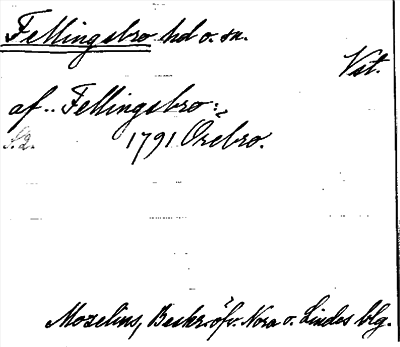 Fellingsbro hd o. sn.
Vst.
af.. Fellingsbro:
S. 2.
1791 Örebro.
Moselius, Beskr. öfv. Nora o. Lindes blg.